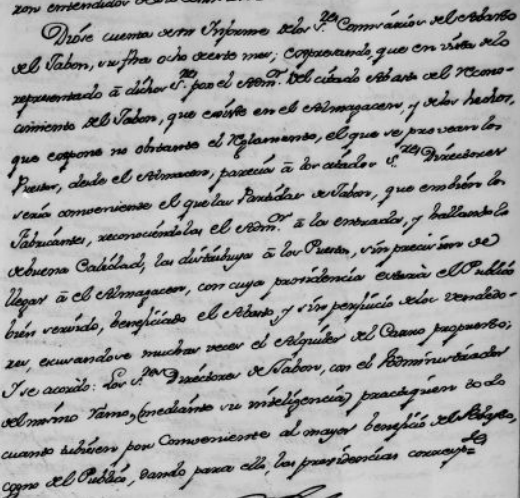 ron entendidos
Dióse cuenta de un Informe de los S.res Comisários del Abasto
del Jabon, su fha ocho de este mes; expresando, que en vista de lo
representado á dichos S.res por el Adm.or del citado Abasto del recono-
cimiento del Jabon, que existe en el Almagacen, y de los hechos,
que expone no obstante el Reglamento, el que se provean los
Puestos, desde el Almacen, parecia á los citados S.res Directores
sería conveniente el que las Partidas de Jabon, que embien los
Fabricantes, reconociendolas el Adm.or á la entrada, y hallandolo
de buena Calidad, las distribuya á los Puestos, sin precision de
llegar á el Almagacen, con cuya providencia estará el Público
bien servido, beneficiado el Abasto, y sin perjuicio de los Vendedo-
res, escusandose muchas veces el Alquiler del Carro propenso;
Y se acordó: Los S.res Directores de Jabon, con el Administrador
del mismo Ramo, (mediante su inteligencia) practiquen todo
cuanto tubiesen por Conveniente al mayor beneficio del Abasto,
como del Publico, dando para ello, las providencias corresp.tes